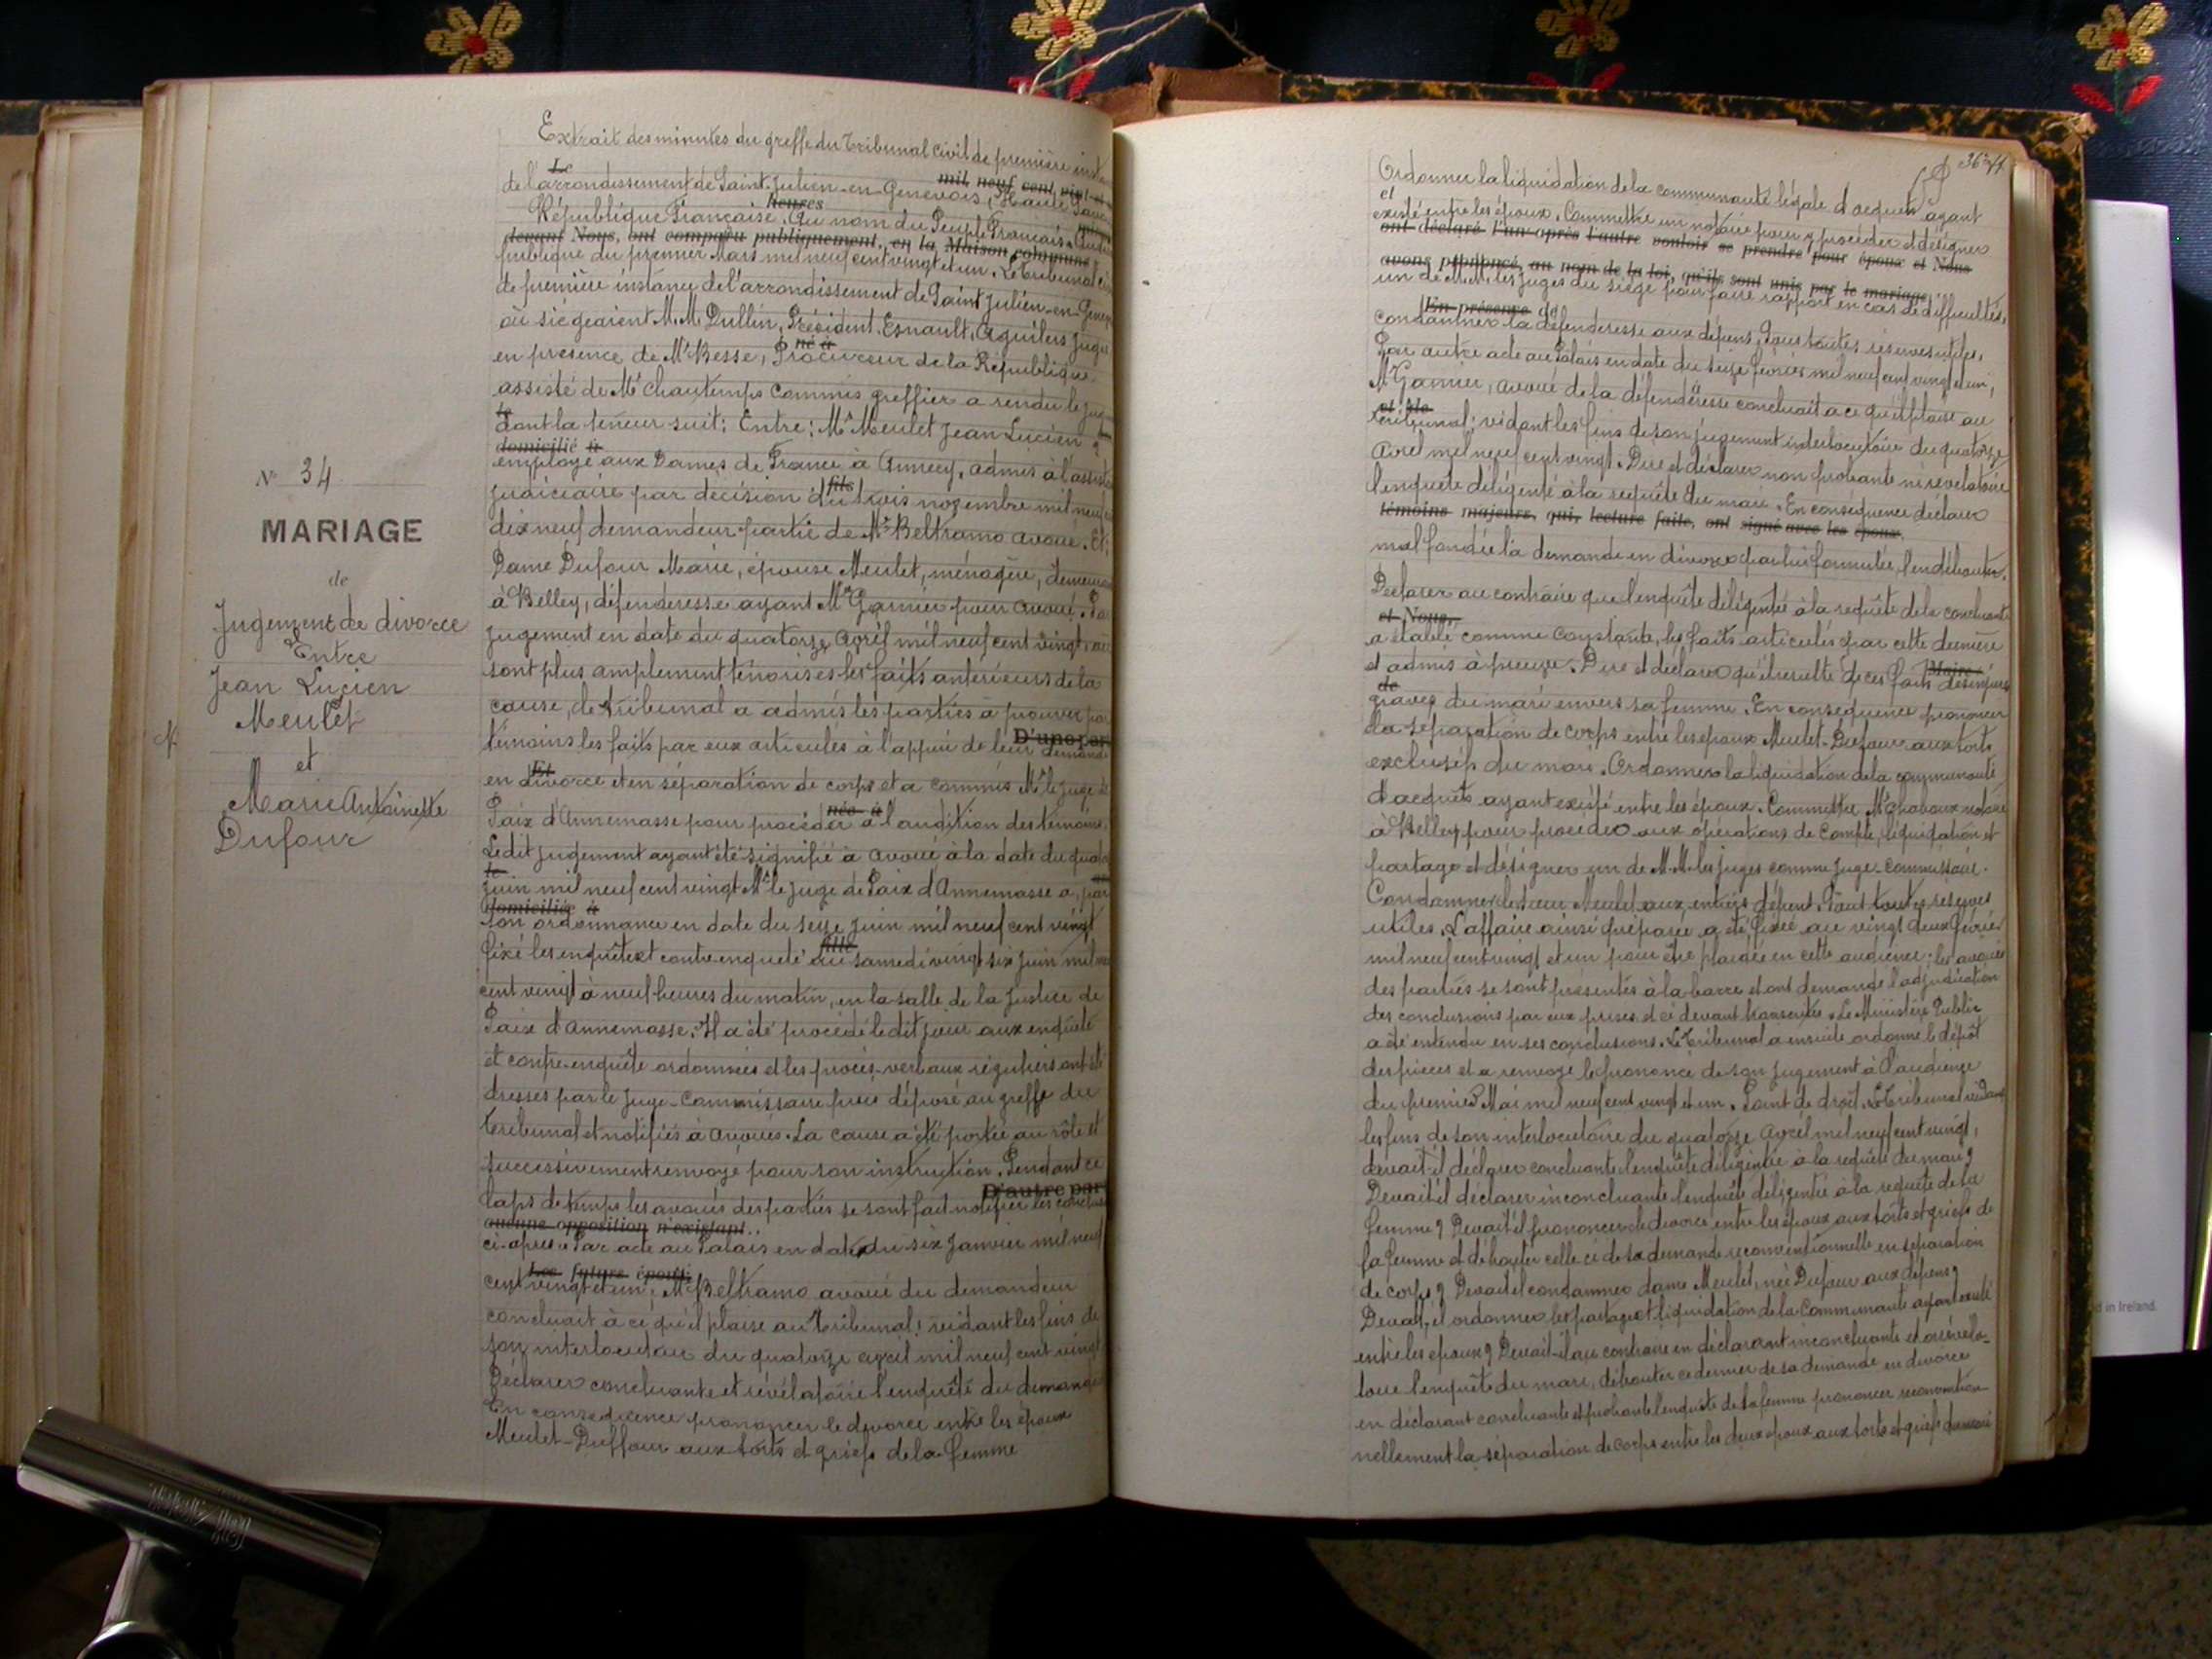 N° 34
MARIAGE
de
Jugement de divorce
Entre
Jean Lucien
Meulet
et
Marie Antoinette
Dufour
Extrait des minutes du greffe du Tribunal civil de première
Le mil neuf cent
de l'arrondissement de Saint-Julien-en-Genevois, Haute
heures
République Française. Au nom du Peuple Français.
devant Nous, ont comparu publiquement, en la Maison commune
publique du premier Mars mil neuf cent vingt et un. Le Tribunal
de première instance de l'arrondissement de Saint Julien-en-
où siégeaient M.M. Dullin, Président, Esnault, Aguilers
né à
en présence de Mr Besse, Procureur de la République
assisté de Me Chautemps Commis greffier a rendu le
le
dont la teneur suit: Entre: Mr Meulet Jean Lucien
domicilié à
employé aux Dames de France à Annecy, admis à
fils
judiciaire par décision du trois novembre mil
dix neuf demandeur partie de Me Beltramo avoué. Et:
Dame Dufour Marie, épouse Meulet, ménagère,
à Belley, défenderesse ayant Me Garnier pour avoué.
jugement en date du quatorze Avril mil neuf cent vingt, où
sont plus amplement les faits antérieurs de la
cause, le tribunal a admis les parties à prouver par
D'une part
témoins les faits par eux articulés à l'appui de leur demande
Et
en divorce et en séparation de corps et a commis Mr le Juge de
née à
Paix d'Annemasse pour procéder à l'audition des témoins.
Ledit jugement ayant été signifié à avoué à la date du
le
juin mil neuf cent vingt Mr le juge de Paix d'Annemasse a, par
domiciliée à
son ordonnance en date du seize juin mil neuf cent vingt
fille
fixé les enquête et contre enquête au samedi vingt six juin mil
cent vingt à neuf heures du matin, en la salle de la Justice de
Paix d'Annemasse. Il a été procédé ledit jour aux enquête
et contre-enquête ordonnées et les procès-verbaux réguliers ont été
dressés par le Juge-Commissaire puis déposé au greffe du
tribunal et notifiés à avoués. La cause a été portée au rôle et
successivement renvoyé pour son instruction. Pendant ce
D'autre part
laps de temps les avoués des parties se sont fait notifier les
aucune opposition n'existant..
ci-après. Par acte au Palais en date du six Janvier mil neuf
Les futurs époux
cent vingt et un, Me Beltramo avoué du demandeur
concluait à ce qu'il plaise au tribunal: vidant les fins de
son interlocutoire du quatorze avril mil neuf cent vingt
Déclarer concluante et révélatoire l'enquête du
En conséquence prononcer le divorce entre les époux
Meulet-Duffour aux torts et griefs de la femme
Ordonner la liquidation de la communauté légale d'acquets ayant
et
existé entre les époux. Commettre un notaire pour y procéder et désigner
ont déclaré l'un après l'autre vouloir se prendre pour époux et Nous
avons prononcé, au nom de la loi, qu'ils sont unis par le mariage
un de M.M. les juges du siège pour faire rapport en cas de difficultés,
En présence de
condamner la défenderesse aux dépens, Sous toutes réserves utiles.
Par autre acte au Palais en date du seize février mil neuf cent vingt et un,
Me Garnier, avoué de la défenderesse concluait à ce qu'il plaise au
tribunal: vidant les fins de son jugement interlocutoire du quatorze
Avril mil neuf cent vingt. Dire et déclarer non probante ni révélatoire
l'enquête diligenté à la requête du mari. En conséquence déclarer
témoins majeurs, qui, lecture faite, ont signé avec les époux
mal fondée la demande en divorce par lui formulée l'en débouter.
Déclarer au contraire que l'enquête diligentée à la requête de la concluante
et Nous,
a établi comme constante, les faits articulés par cette dernière
Maire
et admis à preuve. Dire et déclarer qu'il résulte de ces faits
de
graves du mari envers sa femme. En conséquence prononcer
la séparation de corps entre les époux Meulet-Dufour aux torts
exclusifs du mari. Ordonner la liquidation de la communauté
d'acquêts ayant existé entre les époux. Commettre Me notaire
à Belley pour procéder aux opérations de compte, liquidation et
partage et désigner un de M.M. les juges comme Juge-Commissaire.
Condamner le sieur Meulet aux entiers dépens, Sous toutes réserves
utiles. L'affaire ainsi préparée a été fixée au vingt deux février
mil neuf cent vingt et un pour être plaidée en cette audience: les avoués
des parties se sont présentés à la barre et ont demandé l'adjudication
des conclusions par eux prises et ci devant transcrites. Le Ministère Public
a été entendu en ses conclusions. Le Tribunal a ensuite ordonné le dépôt
des pièces et a renvoyé le prononcé de son jugement à l'audience
du premier mil neuf cent vingt et un. Point de droit. Le Tribunal vidant
les fins de son interlocutoire du quatorze Avril mil neuf cent vingt,
devait-il déclarer concluante l'enquête diligentée à la requête du mari?
Devait-il déclarer inconcluante l'enquête diligentée à la requête de la
femme? Devait-il prononcer le divorce entre les époux aux torts et griefs de
la femme et débouter celle ci de sa demande reconventionnelle en séparation
de corps? Devait-il condamner dame Meulet, née Dufour aux dépens?
Devait-il ordonner les partage et liquidation de la Communauté ayant existé
entre les époux? Devait-il au contraire en déclarant inconcluante et
l'enquête du mari, débouter ce dernier de sa demande en divorce
en déclarant concluante et probante l'enquête de la femme prononcer
nellement la séparation de corps entre les deux époux aux torts et griefs du mari